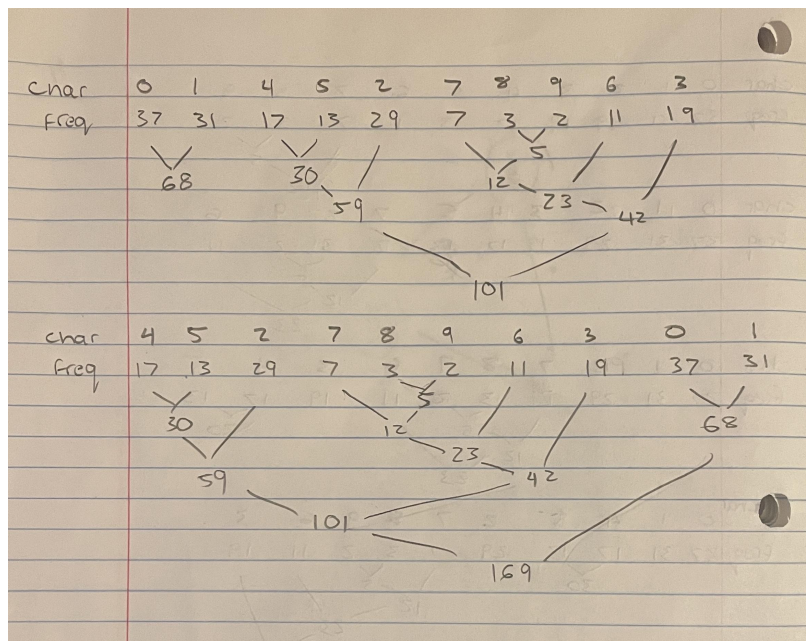 char 0 1 4 5 2 7 8 9 6 3
freq 37 31 17 13 29 7 3 2 11 19
5
68 30 12
59 23 42
101
char 4 5 2 7 8 9 6 3 0 1
freq 17 13 29 7 3 2 11 19 37 31
5
30 12 68
23
59 42
101
169